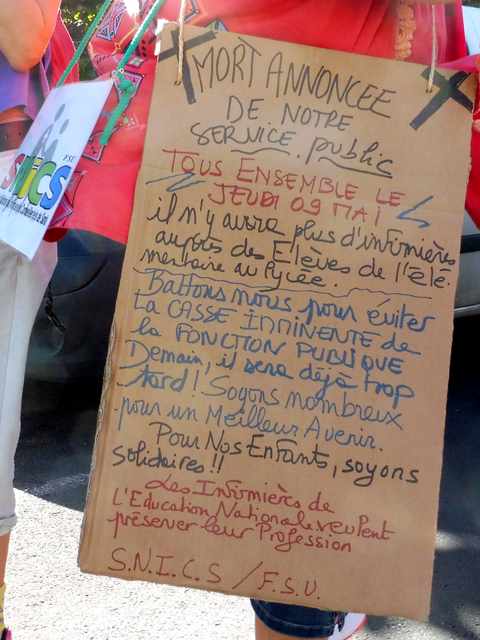 MORT ANNONCEE
DE NOTRE
SERVICE public
TOUS ENSEMBLE LE
JEUDI 09 MAI
il n'y aura plus d'infirmières
auprès des Elèves de l'élé.
mentaire au lycée.
Battons nous pour éviter
La CASSE IMMINENTE de
la FONCTION PUBLIQUE
Demain, il sera déjà trop
tard! Soyons nombreux
pour un Meilleur Avenir.
Pour Nos Enfants, soyons
solidaires!!
Les Infirmières de
L'Education Nationale veulent
préserver leur Profession
S.N.I.C.S / F.S.U.
FSU
SNICS